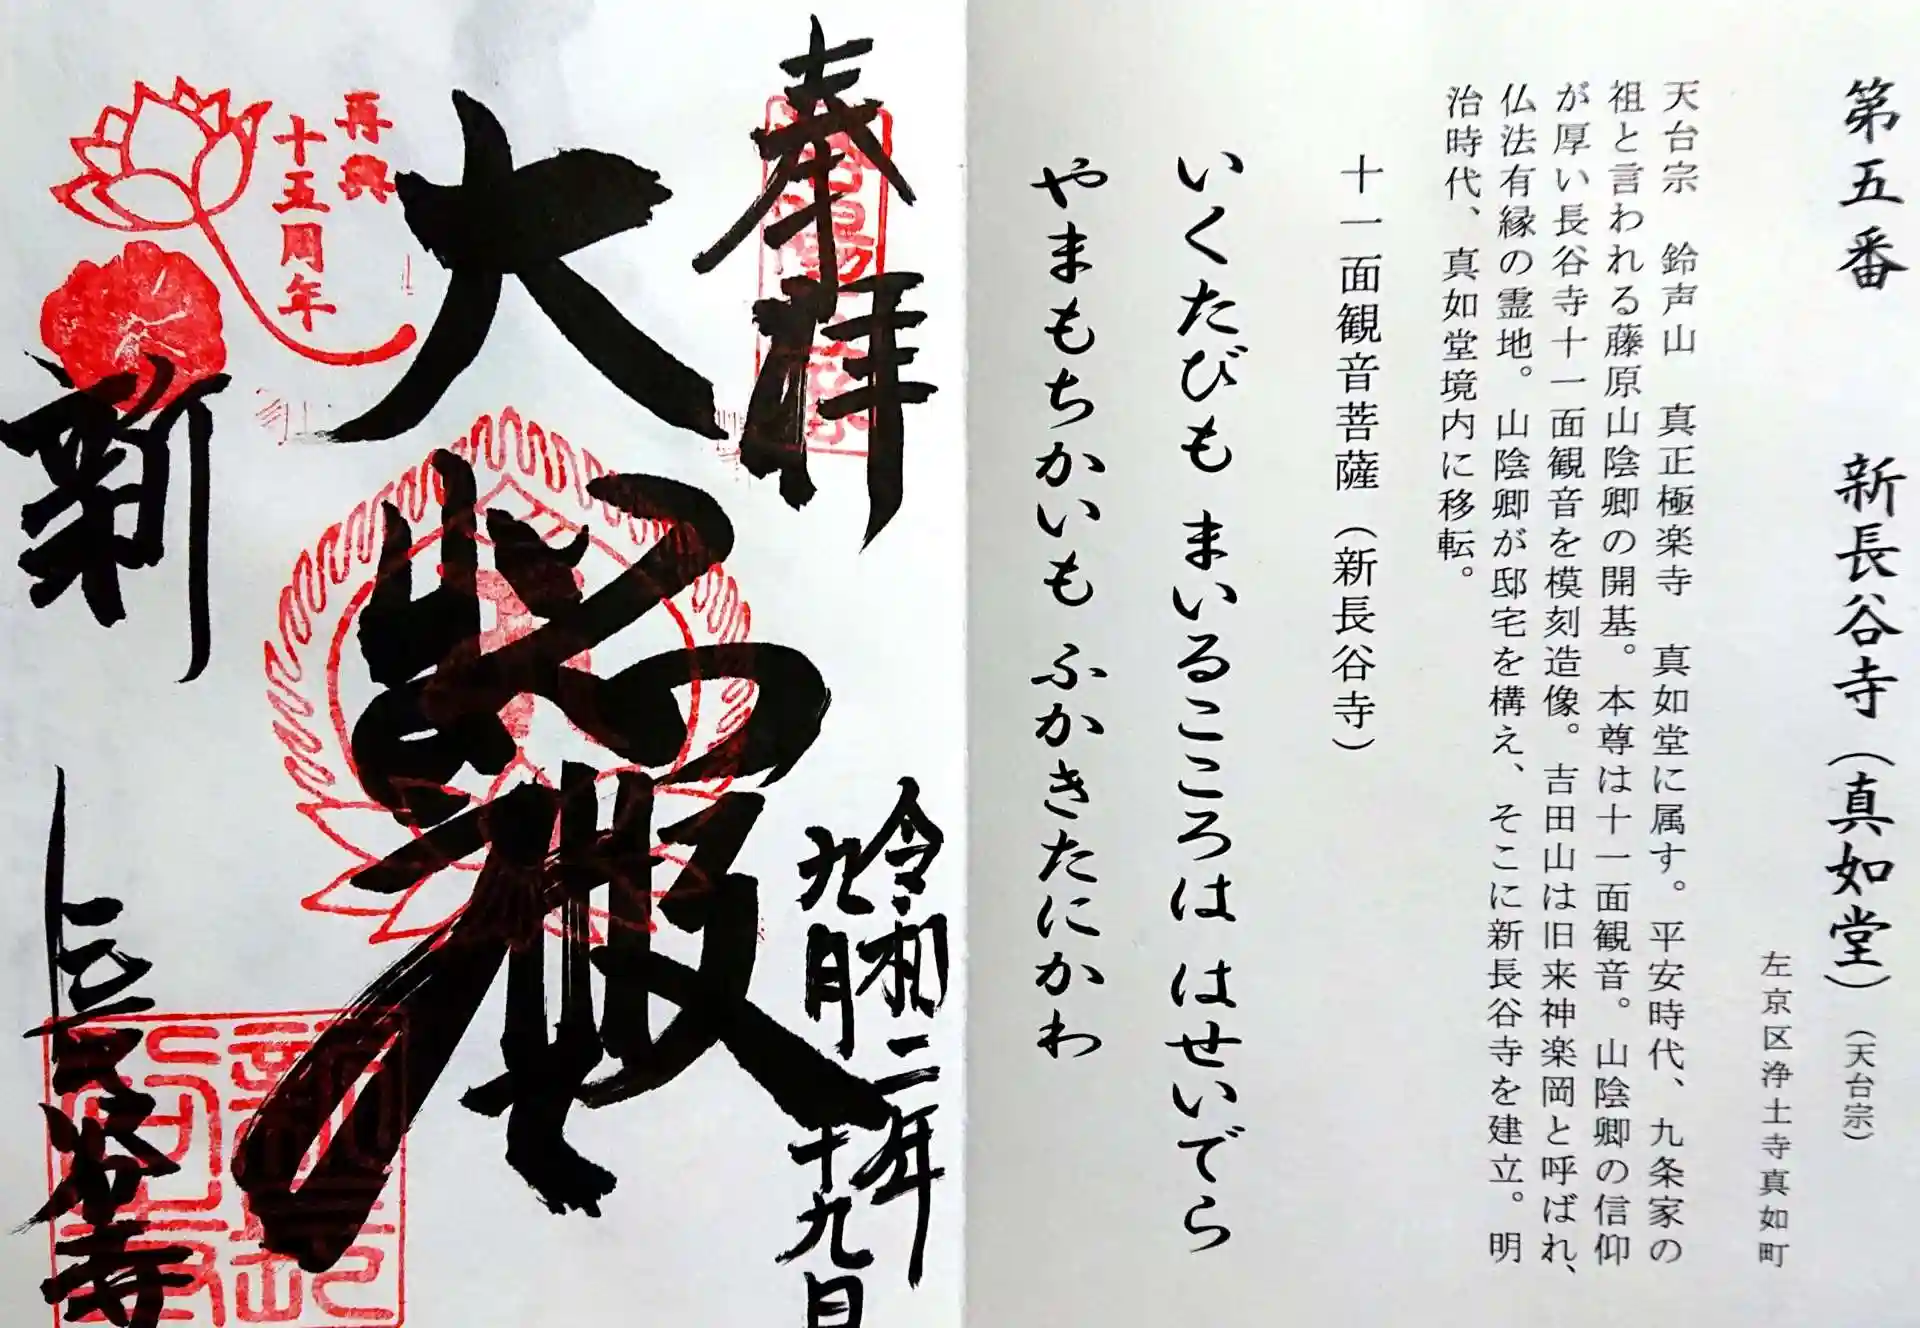 第五番 新長谷寺（真如堂）（天台宗）
左京区浄土寺真如町
天台宗 鈴声山 真正極楽寺 真如堂に属す。平安時代、九条家の
祖と言われる藤原山陰卿の開基。本尊は十一面観音。山陰卿の信仰
が厚い長谷寺十一面観音を模刻造像。吉田山は旧来神楽岡と呼ばれ、
仏法有縁の霊地。山陰卿が邸宅を構え、そこに新長谷寺を建立。明
治時代、真如堂境内に移転。
十一面観音菩薩（新長谷寺）
いくたびも まいるこころは はせいでら
やまもちかいも ふかきたにかわ
奉拝
令和二年
九月十九日
大悲殿
再興
十五周年
新長谷寺